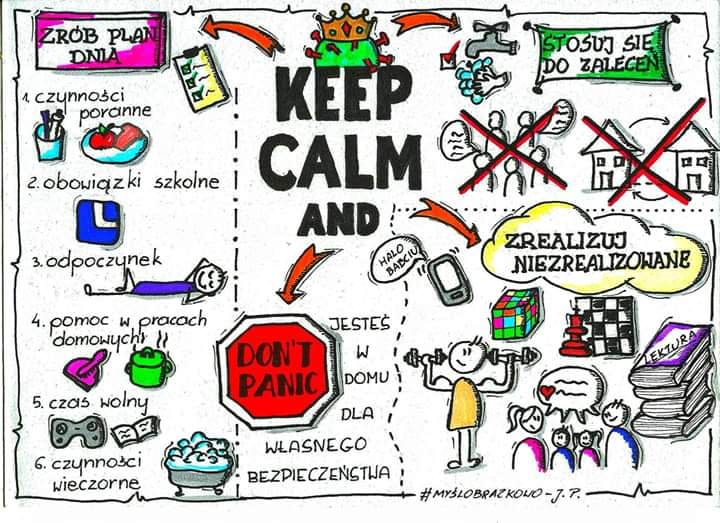 ZRÓB PLAN
DNIA
1. czynności
poranne
2. obowiązki szkolne
3. odpoczynek
4. pomoc w pracach
domowych
5. czas wolny
6. czynności
wieczorne
KEEP
CALM
AND
DON'T
PANIC
JESTEŚ
W
DOMU
DLA
WŁASNEGO
BEZPIECZEŃSTWA
STOSUJ SIĘ
DO ZALECEŃ
ZREALIZUJ
NIEZREALIZOWANE
HALO
BABCIU
LEKTURA
#MYŚLOBRAZKOWO - J.P.